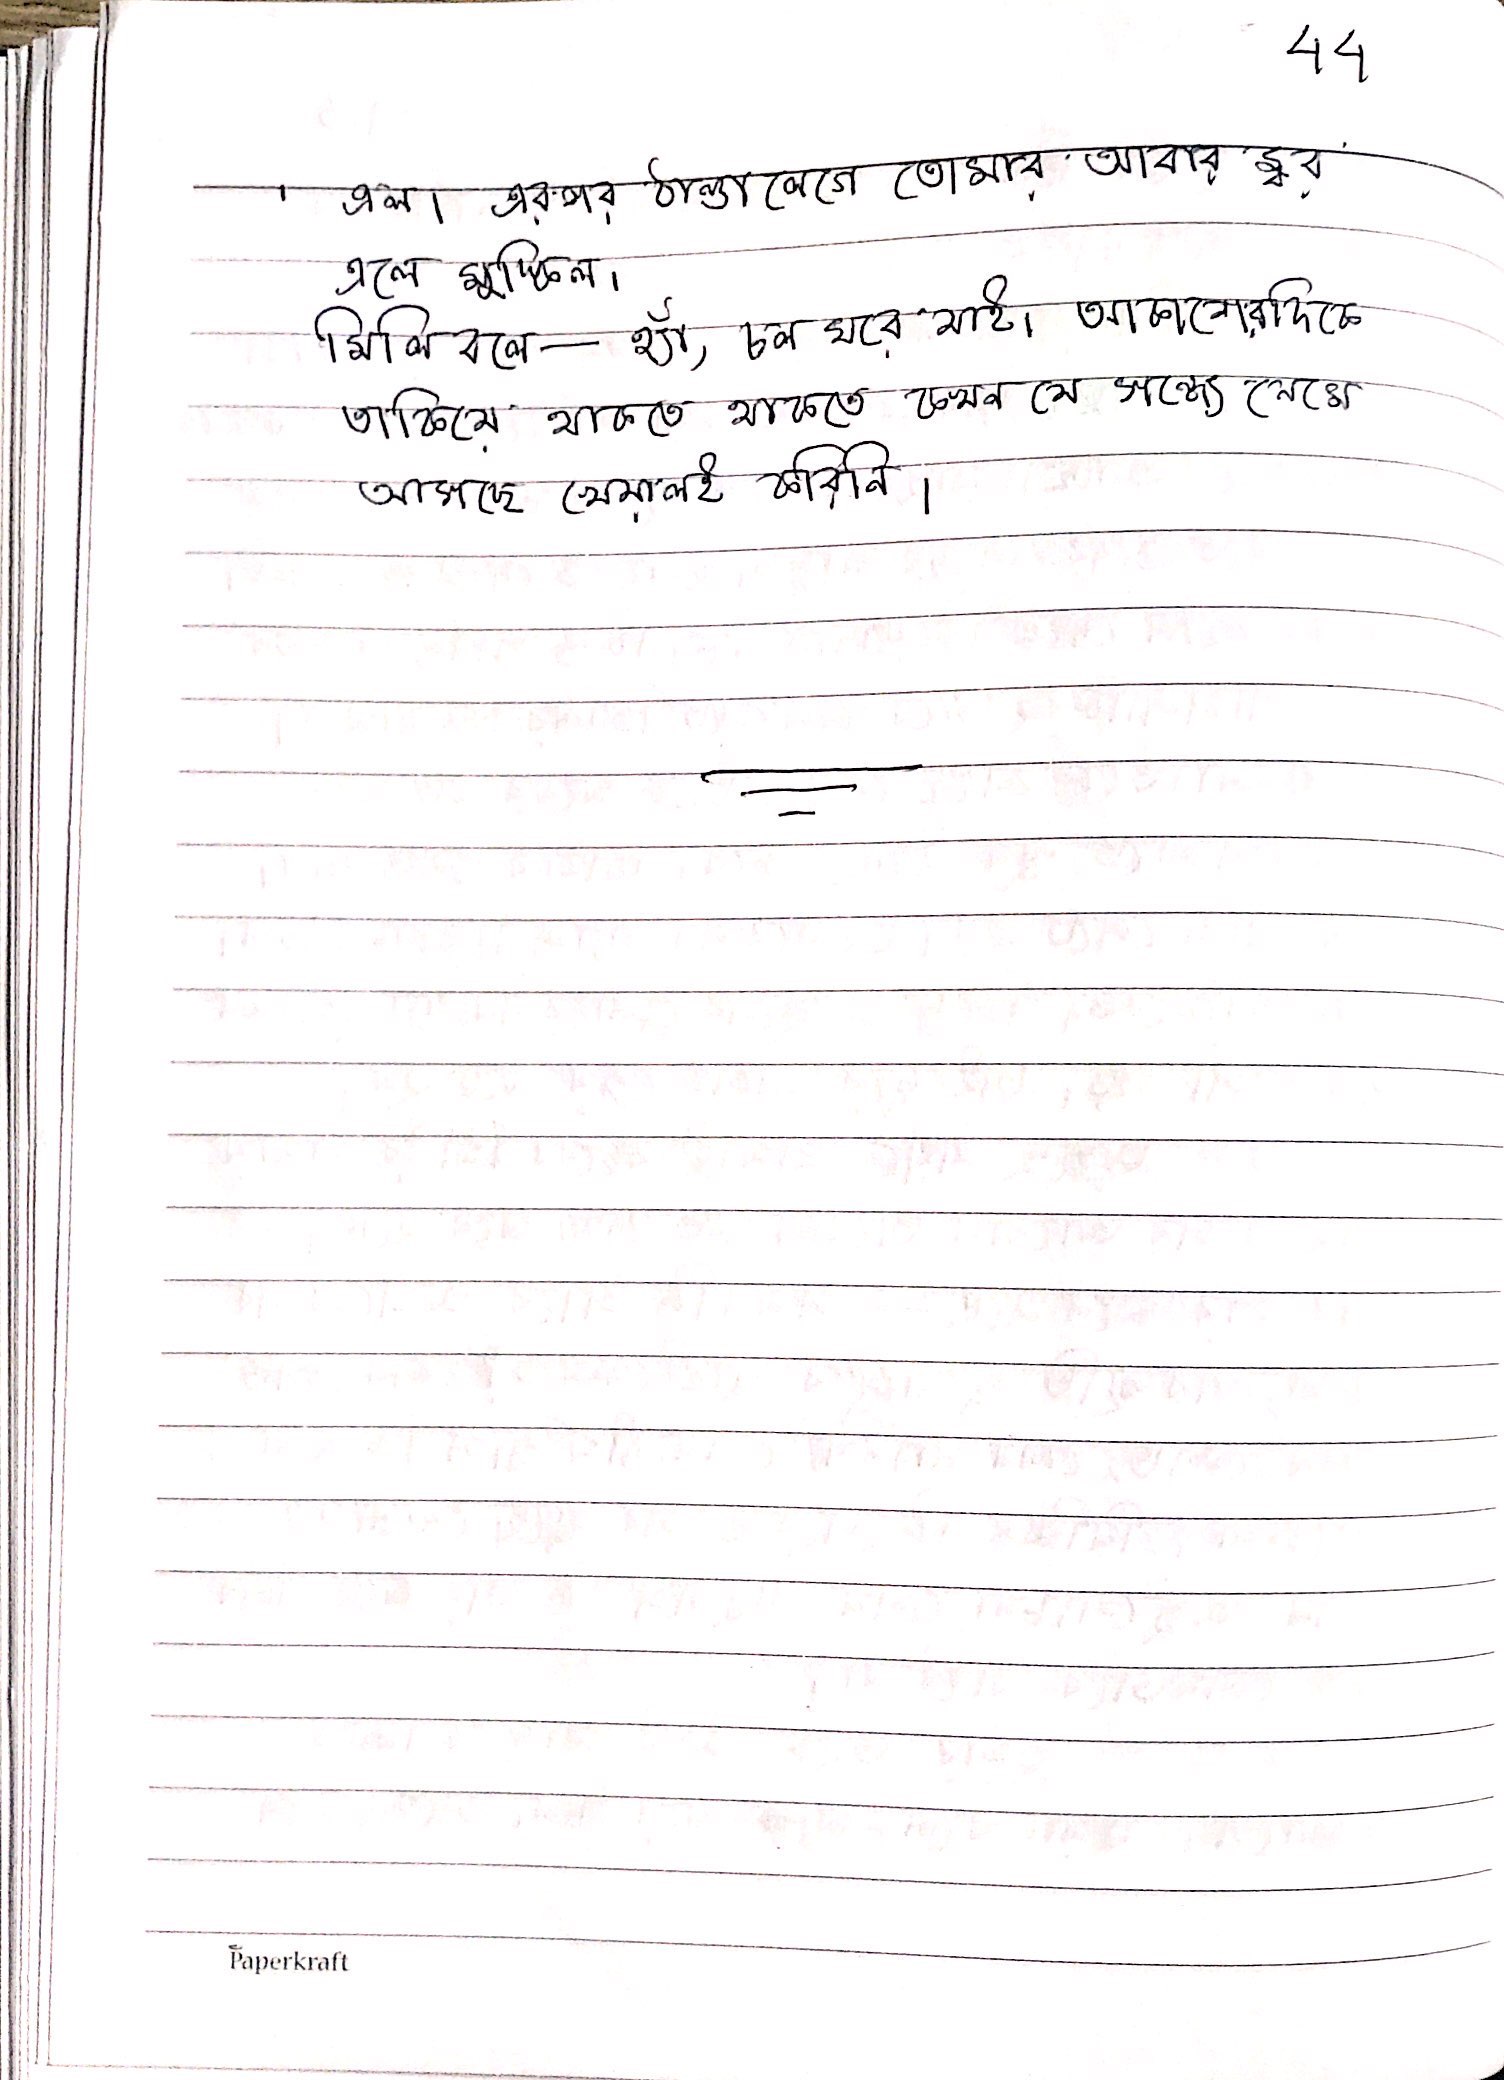 44
এল। এরপর ঠান্ডা লেগে তোমার আবার জ্বর
এলে মুশ্কিল।
মিলি বলে — হ্যাঁ, চল ঘরে যাই। আকাশেরদিকে
তাকিয়ে থাকতে থাকতে কখন যে সন্ধ্যে নেমে
আসছে খেয়ালই করিনি।
Paperkraft